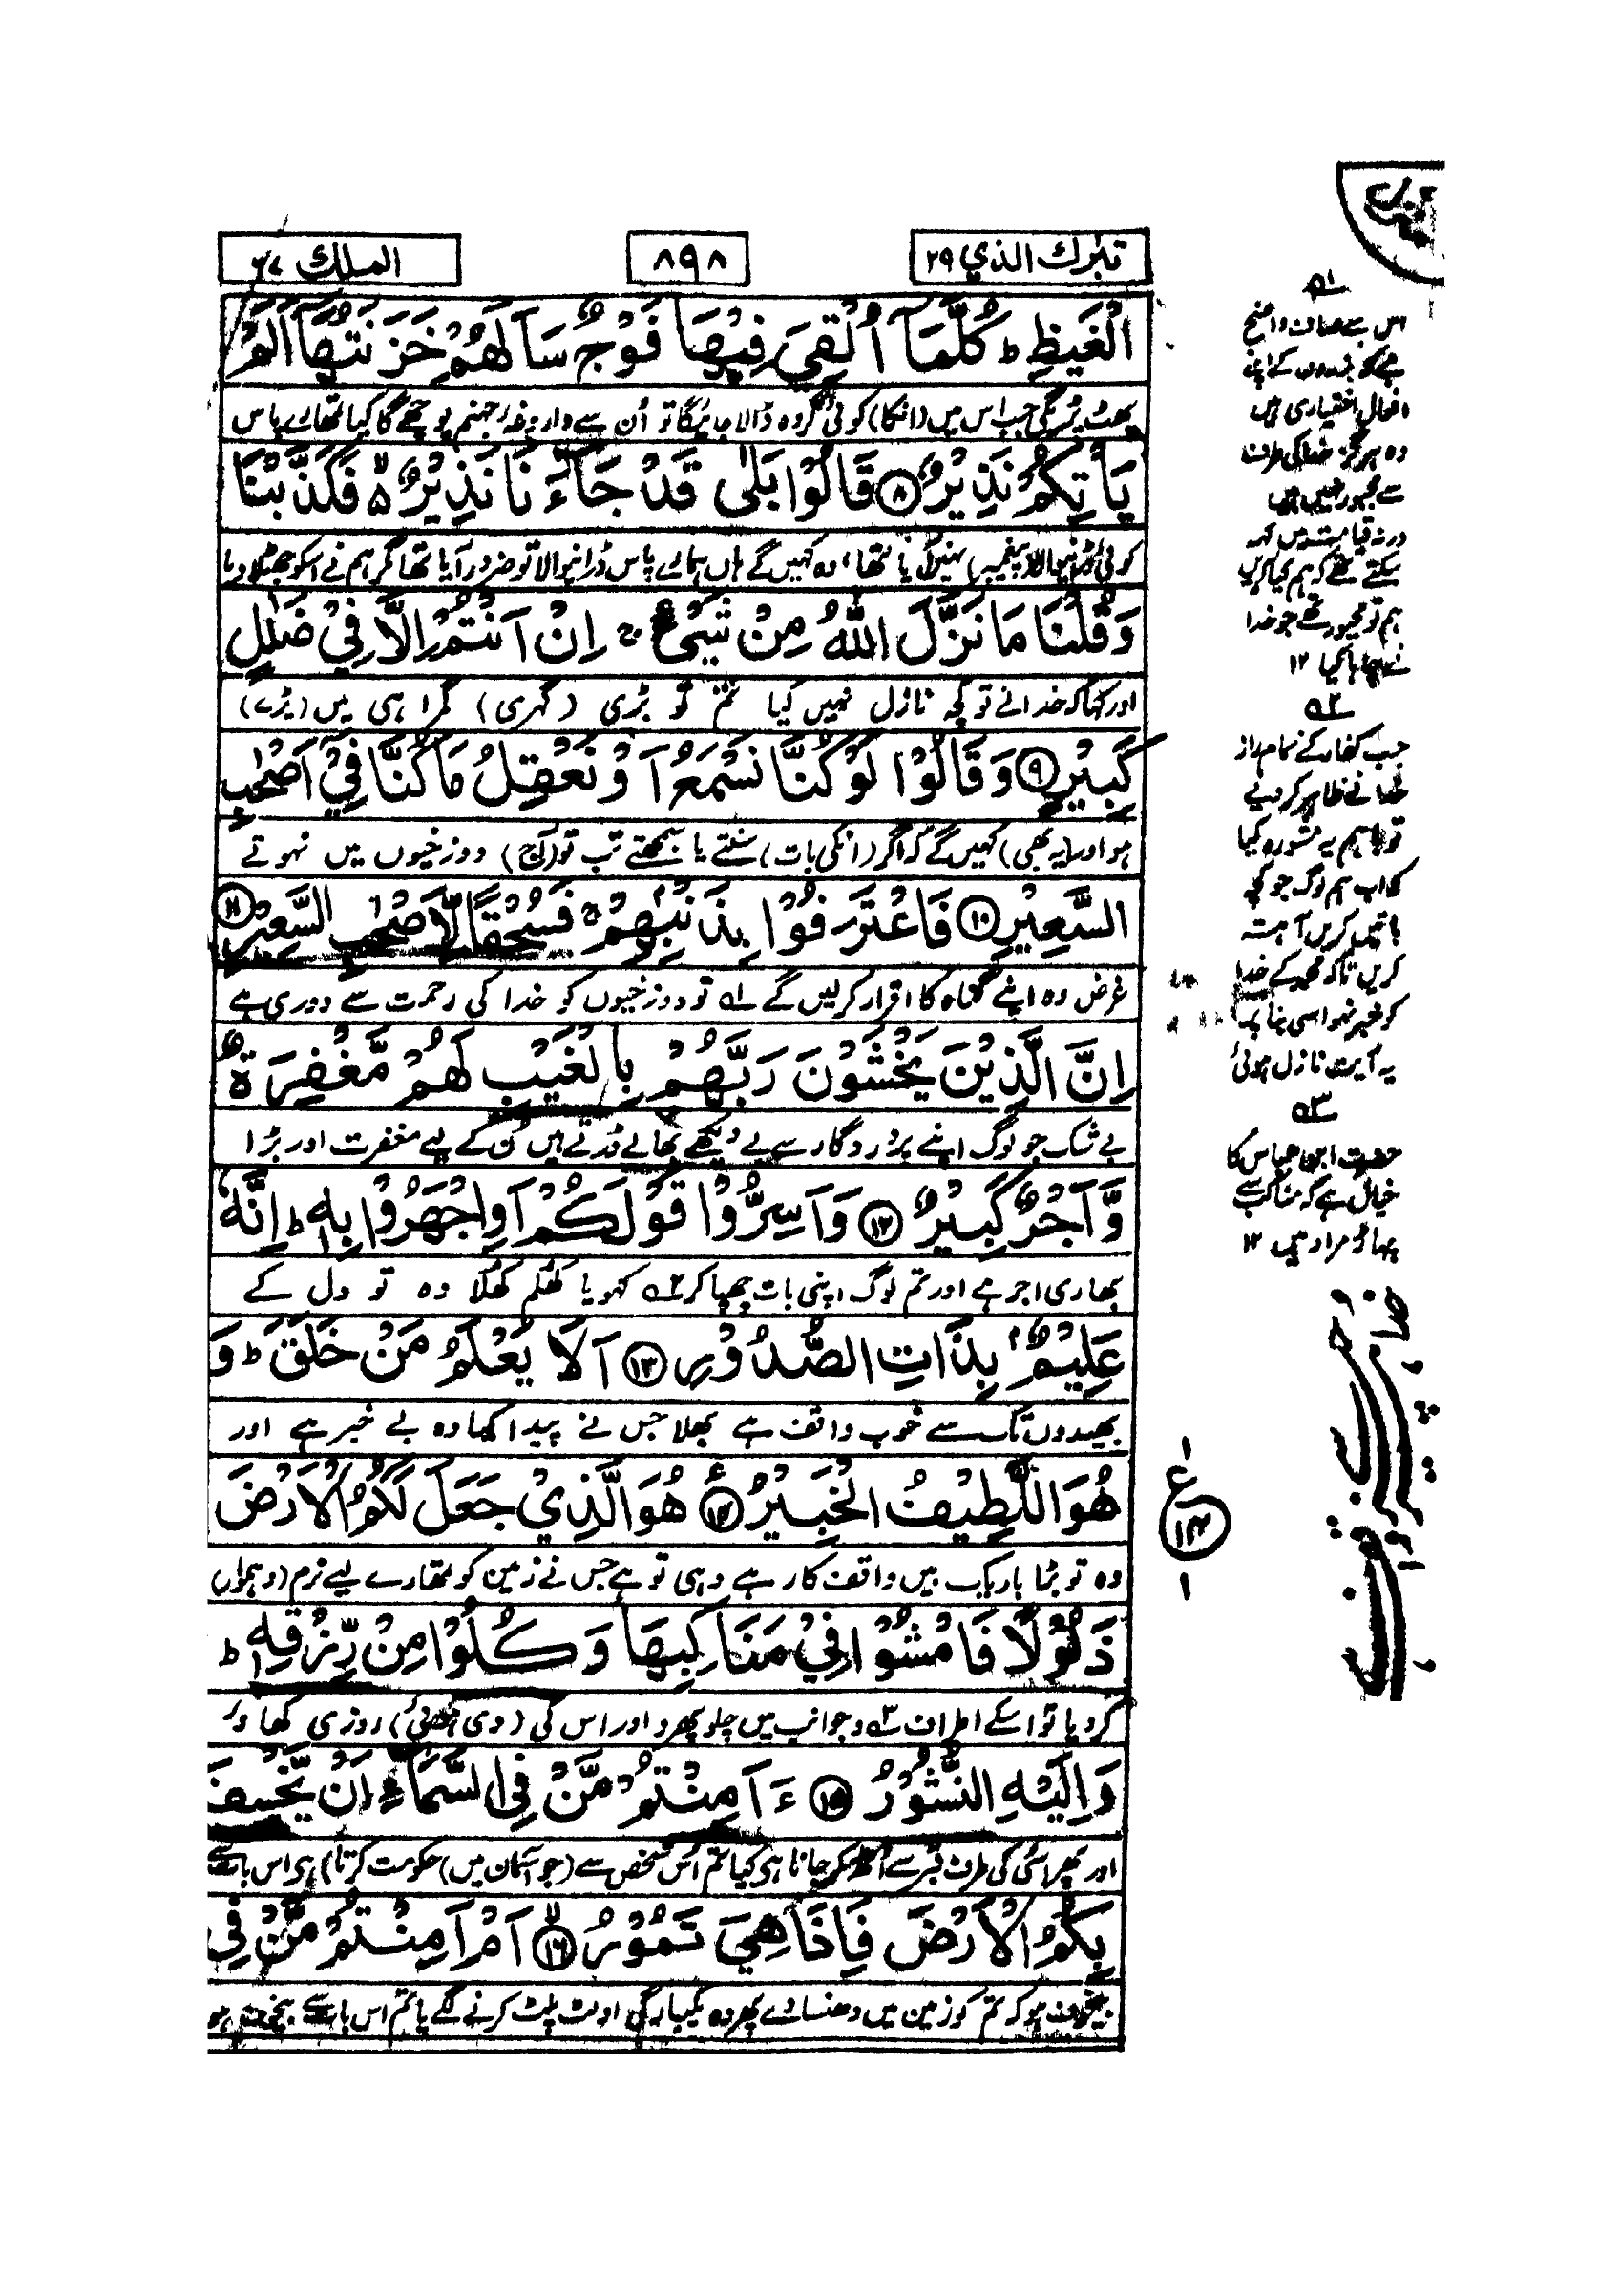 تبٰرك الذي ۲۹
۸۹۸
الملك ۶۷
الْغَيْظِ ط كُلَّمَآ اُلْقِيَ فِيْهَا فَوْجٌ سَاَلَهُمْ خَزَنَتُهَآ اَلَمْ
پھٹ پڑیگی جب اس میں (انکا) کوئی گروہ ڈالا جائیگا تو اُن سے داروغۂ جہنم پوچھے گا کیا تمھارے پاس
يَاْتِكُمْ نَذِيْرٌ ۸ قَالُوْا بَلٰى قَدْ جَآءَنَا نَذِيْرٌ ۵ فَكَذَّبْنَا
کوئی ڈرانیوالا پیغمبر) نہیں آیا تھا، وہ کہیں گے ہاں ہمارے پاس ڈرانیوالا تو ضرور آیا تھا مگر ہم نے اسکو جھٹلا دیا
وَقُلْنَا مَا نَزَّلَ اللّٰهُ مِنْ شَيْءٍ اِنْ اَنْتُمْ اِلَّا فِيْ ضَلٰلٍ
اور کہا کہ خدا نے تو کچھ نازل نہیں کیا تم تو بڑی (گہری) گمراہی میں (پڑے)
كَبِيْرٍ ۹ وَقَالُوْا لَوْ كُنَّا نَسْمَعُ اَوْ نَعْقِلُ مَا كُنَّا فِيْ اَصْحٰبِ
ہو اور (یہ بھی) کہیں گے کہ اگر (انکی بات) سنتے یا سمجھتے تب تو (آج) دوزخیوں میں نہوتے
السَّعِيْرِ ۱۰ فَاعْتَرَفُوْا بِذَنْبِهِمْ ج فَسُحْقًا لِّاَصْحٰبِ السَّعِيْرِ ۱۱
غرض وہ اپنے گناہ کا اقرار کرلیں گے ۱ تو دوزخیوں کو خدا کی رحمت سے دوری ہے
اِنَّ الَّذِيْنَ يَخْشَوْنَ رَبَّهُمْ بِالْغَيْبِ لَهُمْ مَّغْفِرَةٌ
بے شک جو لوگ اپنے پروردگار سے بے دیکھے بھالے ڈرتے ہیں اُن کے لیے مغفرت اور بڑا
وَّاَجْرٌ كَبِيْرٌ ۱۲ وَاَسِرُّوْا قَوْلَكُمْ اَوِ اجْهَرُوْا بِهٖ ط اِنَّهٗ
بھاری اجر ہے اور تم لوگ اپنی بات چھپا کر ۲ کہو یا کھُلم کھُلا وہ تو دل کے
عَلِيْمٌ بِذَاتِ الصُّدُوْرِ ۱۳ اَلَا يَعْلَمُ مَنْ خَلَقَ ط وَ
بھیدوں تک سے خوب واقف ہے بھلا جس نے پیدا کیا وہ بے خبر ہے اور
هُوَ اللَّطِيْفُ الْخَبِيْرُ ۱۴ ع هُوَ الَّذِيْ جَعَلَ لَكُمُ الْاَرْضَ
وہ تو بڑا باریک بیں واقف کار ہے وہی تو ہے جس نے زمین کو تمھارے لیے نرم (وہموار)
ذَلُوْلًا فَامْشُوْا فِيْ مَنَاكِبِهَا وَكُلُوْا مِنْ رِّزْقِهٖ ط
کر دیا تو اسکے اطراف ۳ وجوانب میں چلو پھرو اور اس کی (دی ہوئی) روزی کھاؤ
وَاِلَيْهِ النُّشُوْرُ ۱۵ ءَاَمِنْتُمْ مَّنْ فِي السَّمَآءِ اَنْ يَّخْسِفَ
اور پھر اسی کی طرف قبر سے اُٹھکر جانا ہی کیا تم اس شخص سے (جو آسمان میں) حکومت کرتا) ہی اس بات سے
بِكُمُ الْاَرْضَ فَاِذَا هِيَ تَمُوْرُ ۱۶ اَمْ اَمِنْتُمْ مَّنْ فِي
بیخوف ہو کہ تم کو زمین میں دھنسا دے پھر وہ یکبارگی اولٹ پلٹ کرنے لگے یا تم اس بات سے بیخوف ہو
۱
اس سے صاف واضح
ہے کہ بندوں کے اپنے
افعال اختیاری ہیں
وہ ہرگز خدا کی طرف
سے مجبور نہیں ہیں
ورنہ قیامت میں کہہ
سکتے تھے کہ ہم کیا کریں
ہم تو مجبور تھے جو خدا
نے چاہا کیا ۱۲
۲
جب کفار کے تمام راز
خدا نے ظاہر کر دیے
تو باہم یہ مشورہ کیا
کہ اب ہم لوگ جو کچھ
باتیں کریں آہستہ
کریں تاکہ محمد کے خدا
کو خبر نہو اسی بنا پر
یہ آیت نازل ہوئی
۳
حضرت ابن عباس کا
خیال ہے کہ مناکب سے
پہاڑ مراد ہیں ۱۲
ع
۱۴
۱